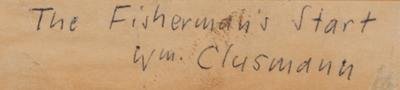 The Fisherman's Start
Wm. Clusmann